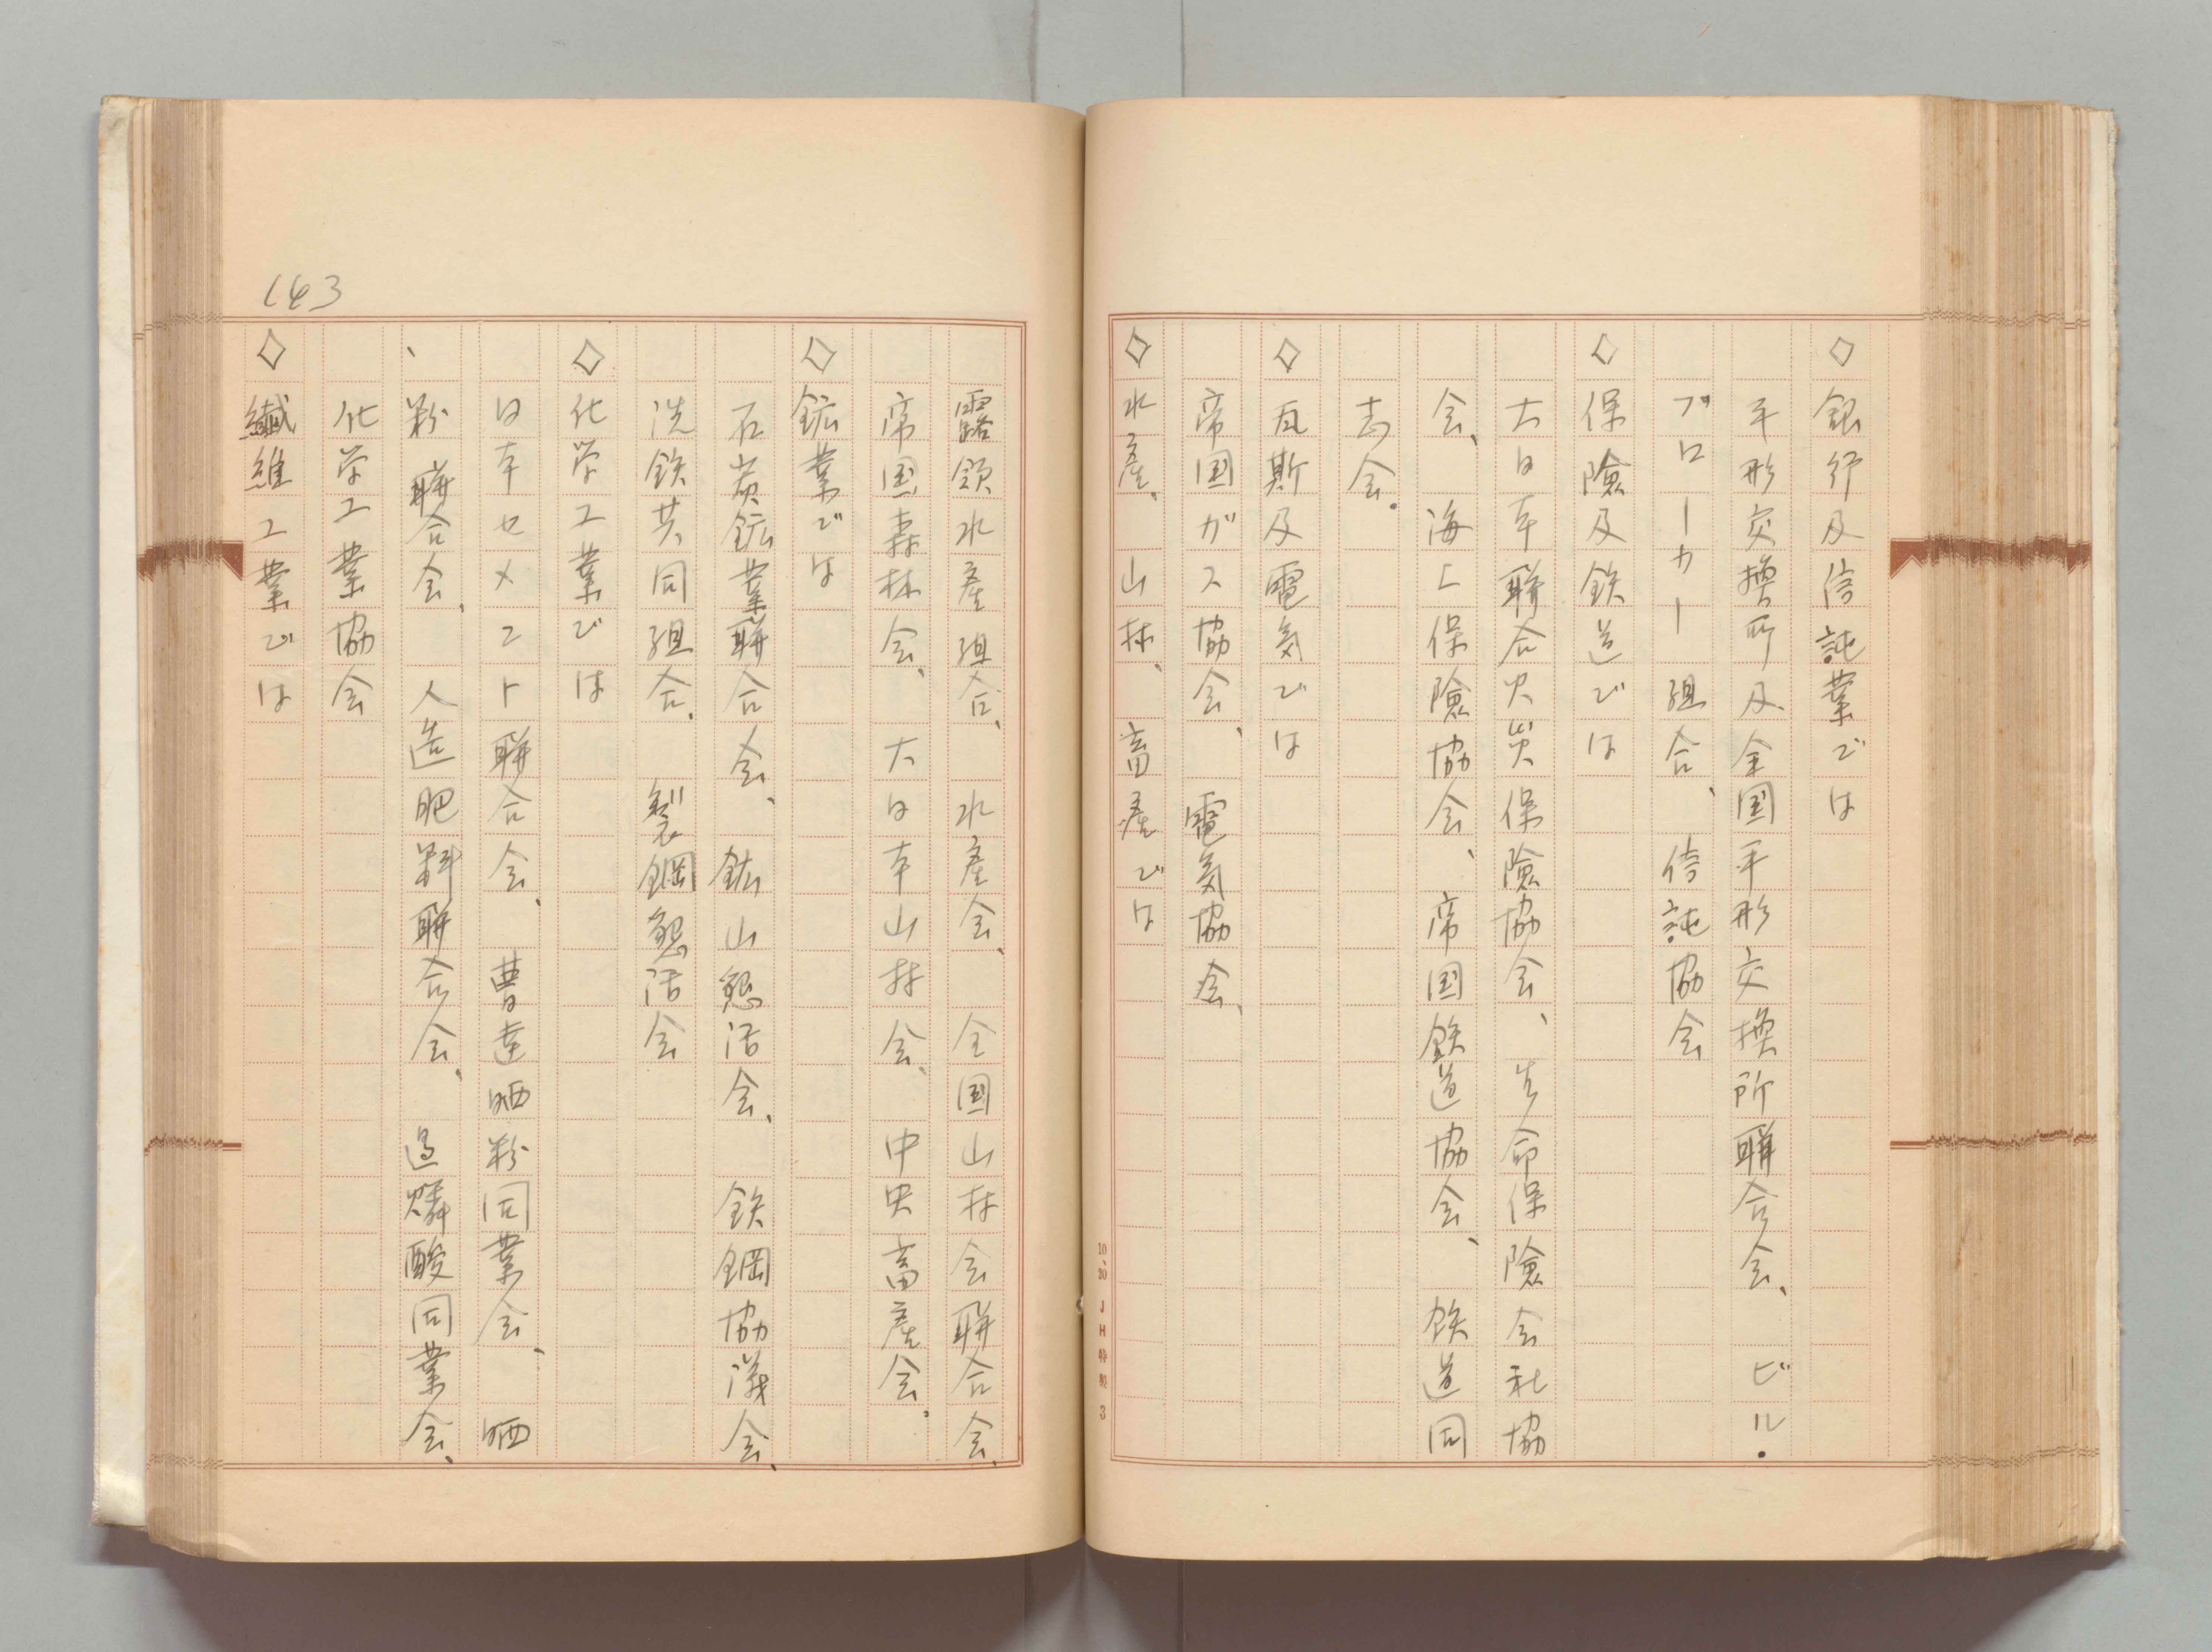 ◇銀行及信託業では
手形交換所及全国手形交換所聯合会、ビル・
ブローカー組合、信託協会
◇保険及鉄道では
大日本聯合火災保険協会、生命保険会社協
会、海上保険協会、帝国鉄道協会、鉄道同
志会.
◇瓦斯及電気では
帝国ガス協会、電気協会、
◇水産、山林、畜産では
10、20 JH特製 3
143
露領水産組合、水産会、全国山林会聯合会、
帝国森林会、大日本山林会、中央畜産会、
◇鉱業では
石炭鉱業聯合会、鉱山懇話会、鉄鋼協議会、
洗鉄共同組合、製鋼懇話会
◇化学工業では
日本セメント聯合会、曹達晒粉同業会、晒
粉聯合会、人造肥料聯合会、過燐酸同業会、
化学工業協会
◇繊維工業では